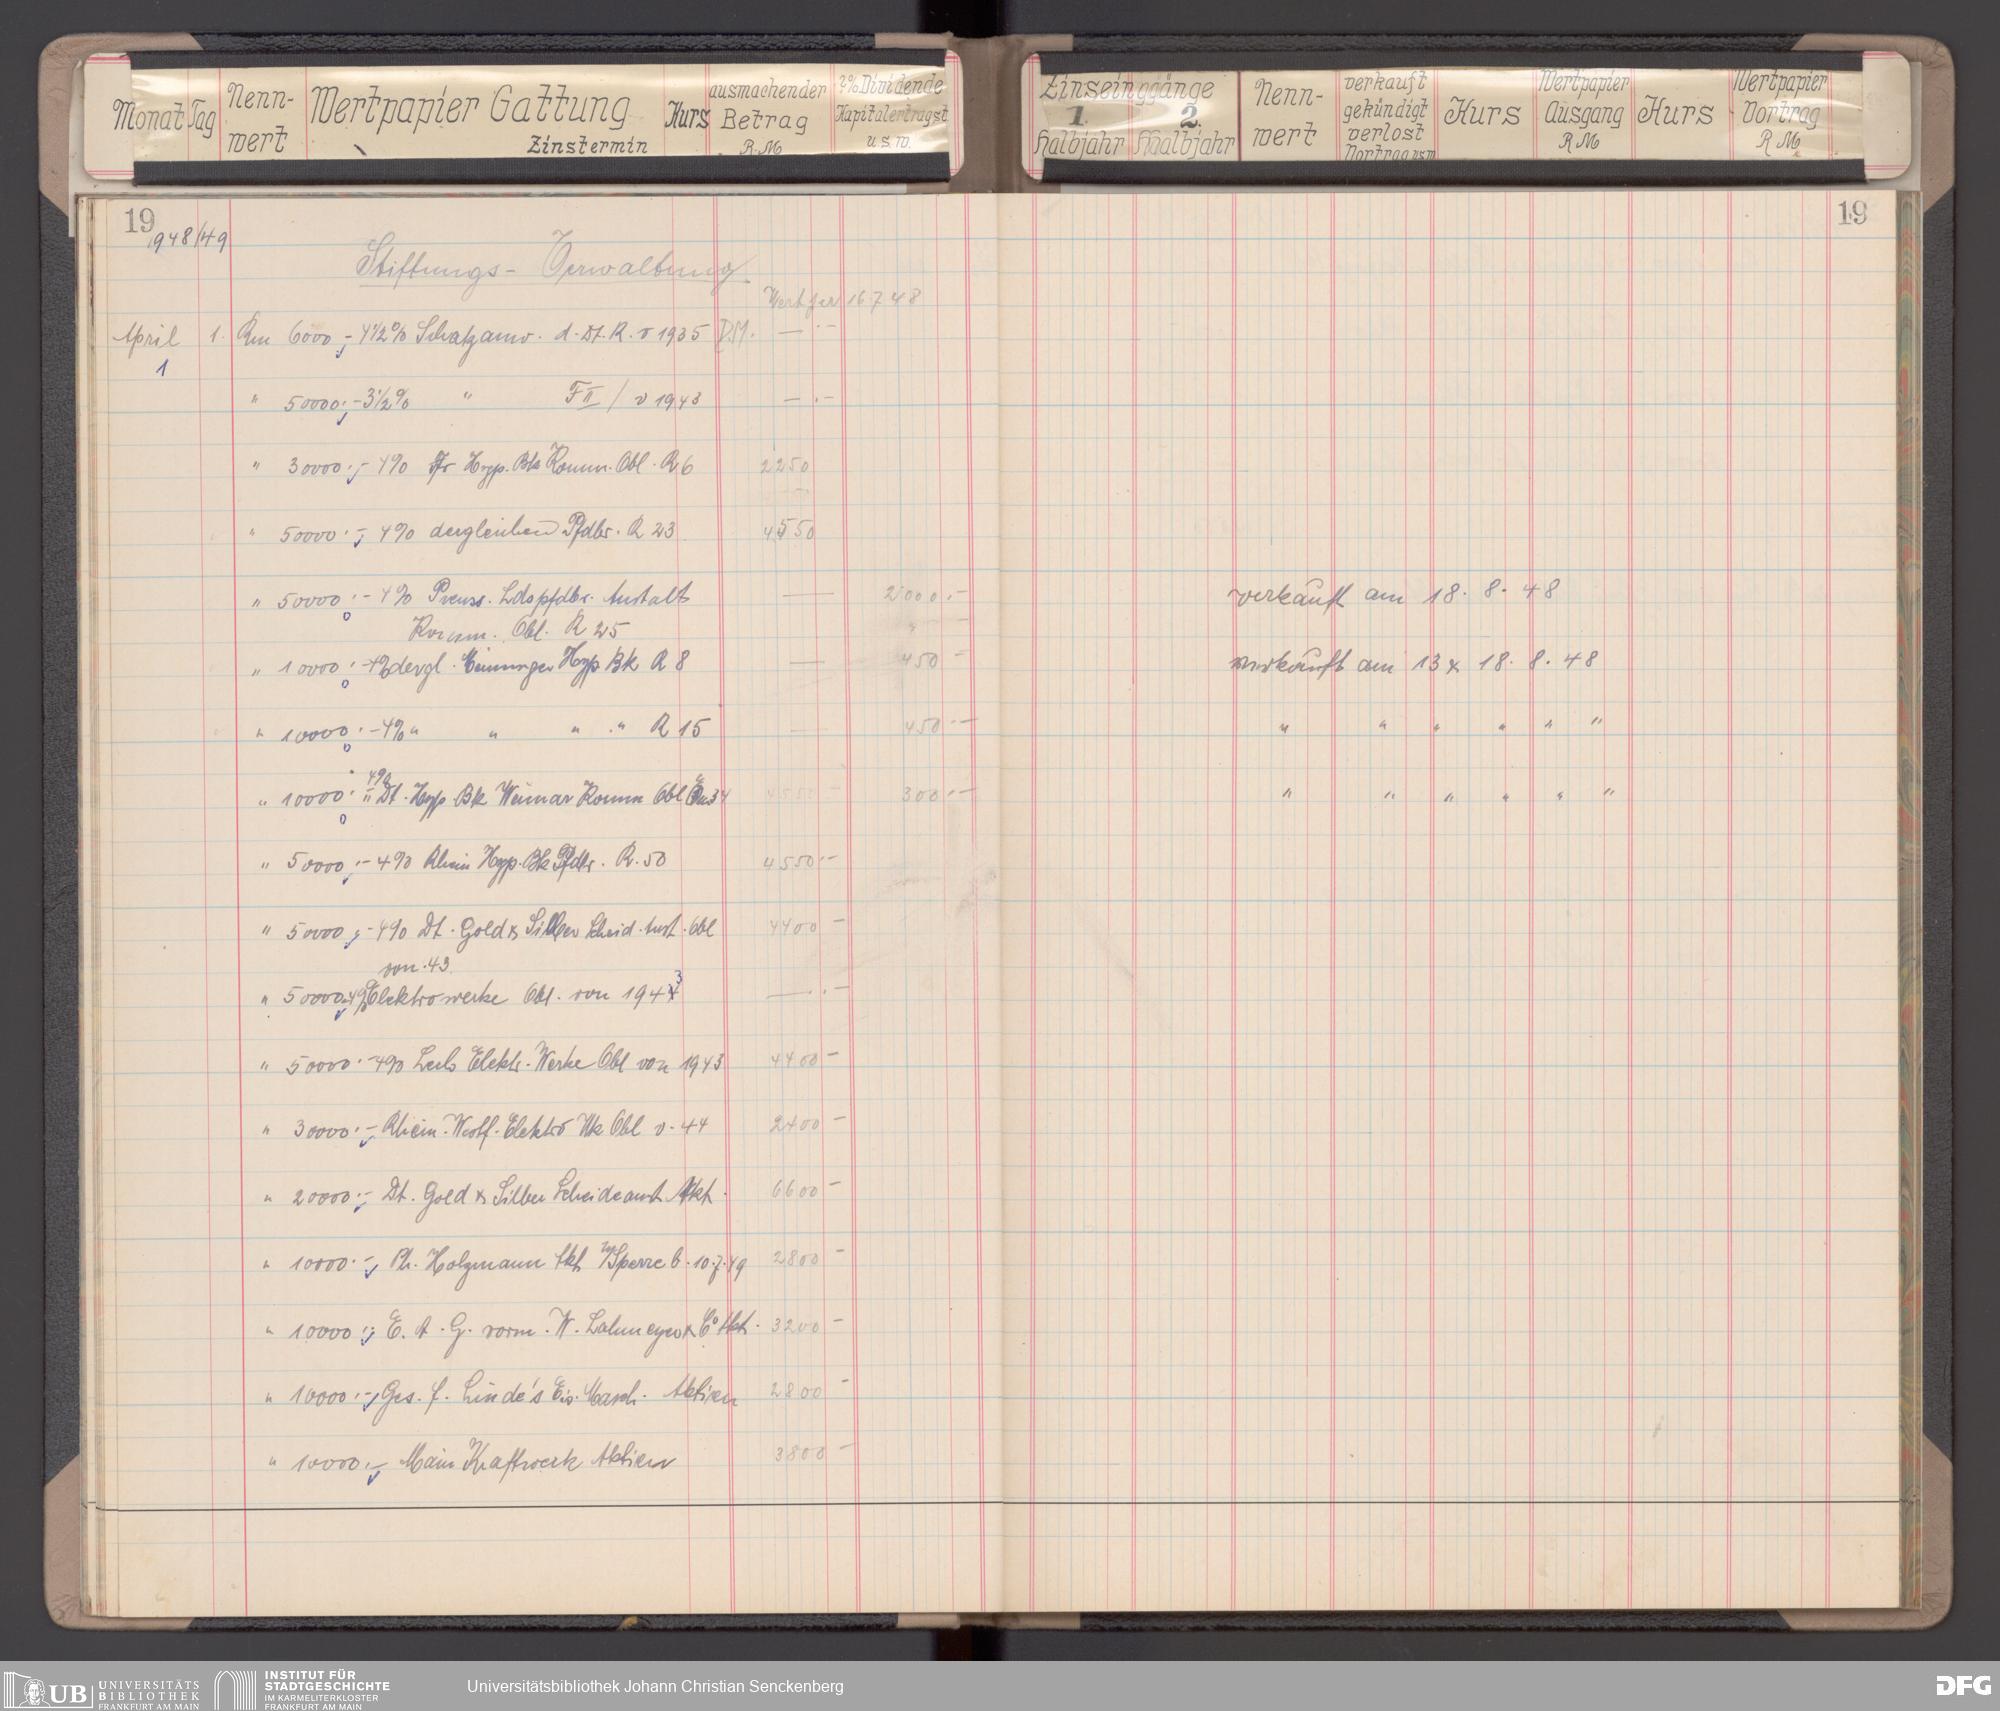 Monat Tag Nenn-wert Wertpapier Gattung Zinstermin Kurs ausmachender Betrag R.M. Dividende Kapitalertragst. u.s.w.
Zinseinggänge 1. Halbjahr 2. Halbjahr Nenn-wert verkauft gekündigt verlost Vortrag usw Kurs Wertpapier Ausgang R M Kurs Wertpapier Vortrag R M
19 19
1948/49
Stiftungs- Verwaltung
Wert per 16 7 48
April 1. Rm 6000,- 4 1/2% Schatzanw. d. Dt. R. v 1935 D.M. —.—
1
" 50000.- 3 1/2% " F II / v 1943 —.—
" 30000.- 4% Fr Hyp. Bk Komm. Obl. R 6 2250
" 50000.- 4% dergleichen Pfdbr. R 23 4550
" 50000.- 4% Preuss. Ldspfdbr. Anstalt — 2000.- verkauft am 18. 8. 48
Komm. Obl. R 25
" 10000.- 4% dergl. Meininger Hyp Bk R 8 — 450 - verkauft am 13 & 18. 8. 48
" 10000.- 4% " " " " R 15 — 450.- " " " " " "
" 10000.- 4% Dt. Hyp. Bk Weimar Komm Obl Em 34 300.- " " " " " "
" 50000.- 4% Rhein Hyp. Bk Pfdbr. R. 50 4550.-
" 50000,- 4% Dt. Gold & Silber Scheid. Anst. Obl 4400 -
von. 43.
" 50000.- 4% Elektrowerke Obl. von 1943 —.—
" 50000.- 4% Lech Elektr. Werke Obl von 1943 4400 -
" 30000.- Rhein. Westf. Elektro Wk Obl v. 44 2400 -
" 20000.- Dt. Gold & Silber Scheideanst Akt. 6600 -
" 10000.- Ph. Holzmann Akt Sperre b. 10.7.49 2800 -
" 10000.- E. A. G. vorm. W. Lahmeyer & Co Akt. 3200 -
" 10000.- Ges. f. Linde's Eis. Masch. Aktien 2800 -
" 10000.- Main Kraftwerk Aktien 3800 -
UB UNIVERSITÄTS BIBLIOTHEK FRANKFURT AM MAIN
INSTITUT FÜR STADTGESCHICHTE IM KARMELITERKLOSTER FRANKFURT AM MAIN
Universitätsbibliothek Johann Christian Senckenberg
DFG